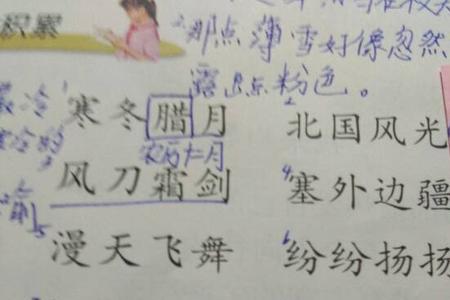 积累
那点薄雪好像忽然
露出点粉色。
最冷
寒冬腊月
北国风光
农历十二月
风刀霜剑
塞外边疆
漫天飞舞
纷纷扬扬